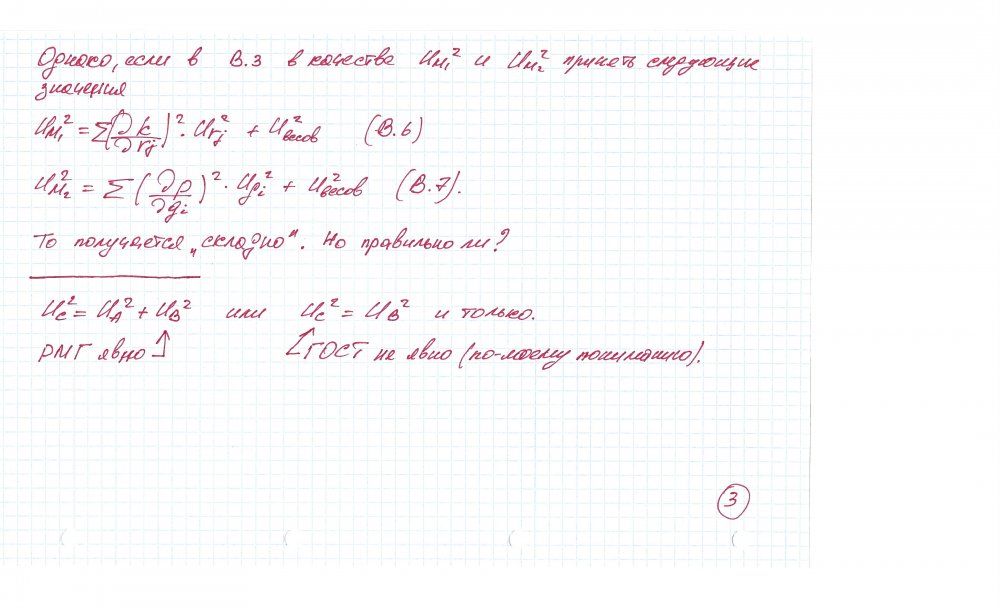 Однако, если в В.3 в качестве U_{M_1}^2 и U_{M_2}^2 принять следующие
значения
U_{M_1}^2 = Σ(∂k/∂r_j)^2 · U_{r_j}^2 + U_{весов}^2 (В.6)
U_{M_2}^2 = Σ(∂ρ/∂g_i)^2 · U_{g_i}^2 + U_{весов}^2 (В.7).
То получается „складно". Но правильно ли?
U_C^2 = U_A^2 + U_B^2 или U_C^2 = U_B^2 и только.
РМГ явно ↑ ↑ ГОСТ не явно (по-моему пониманию).
3